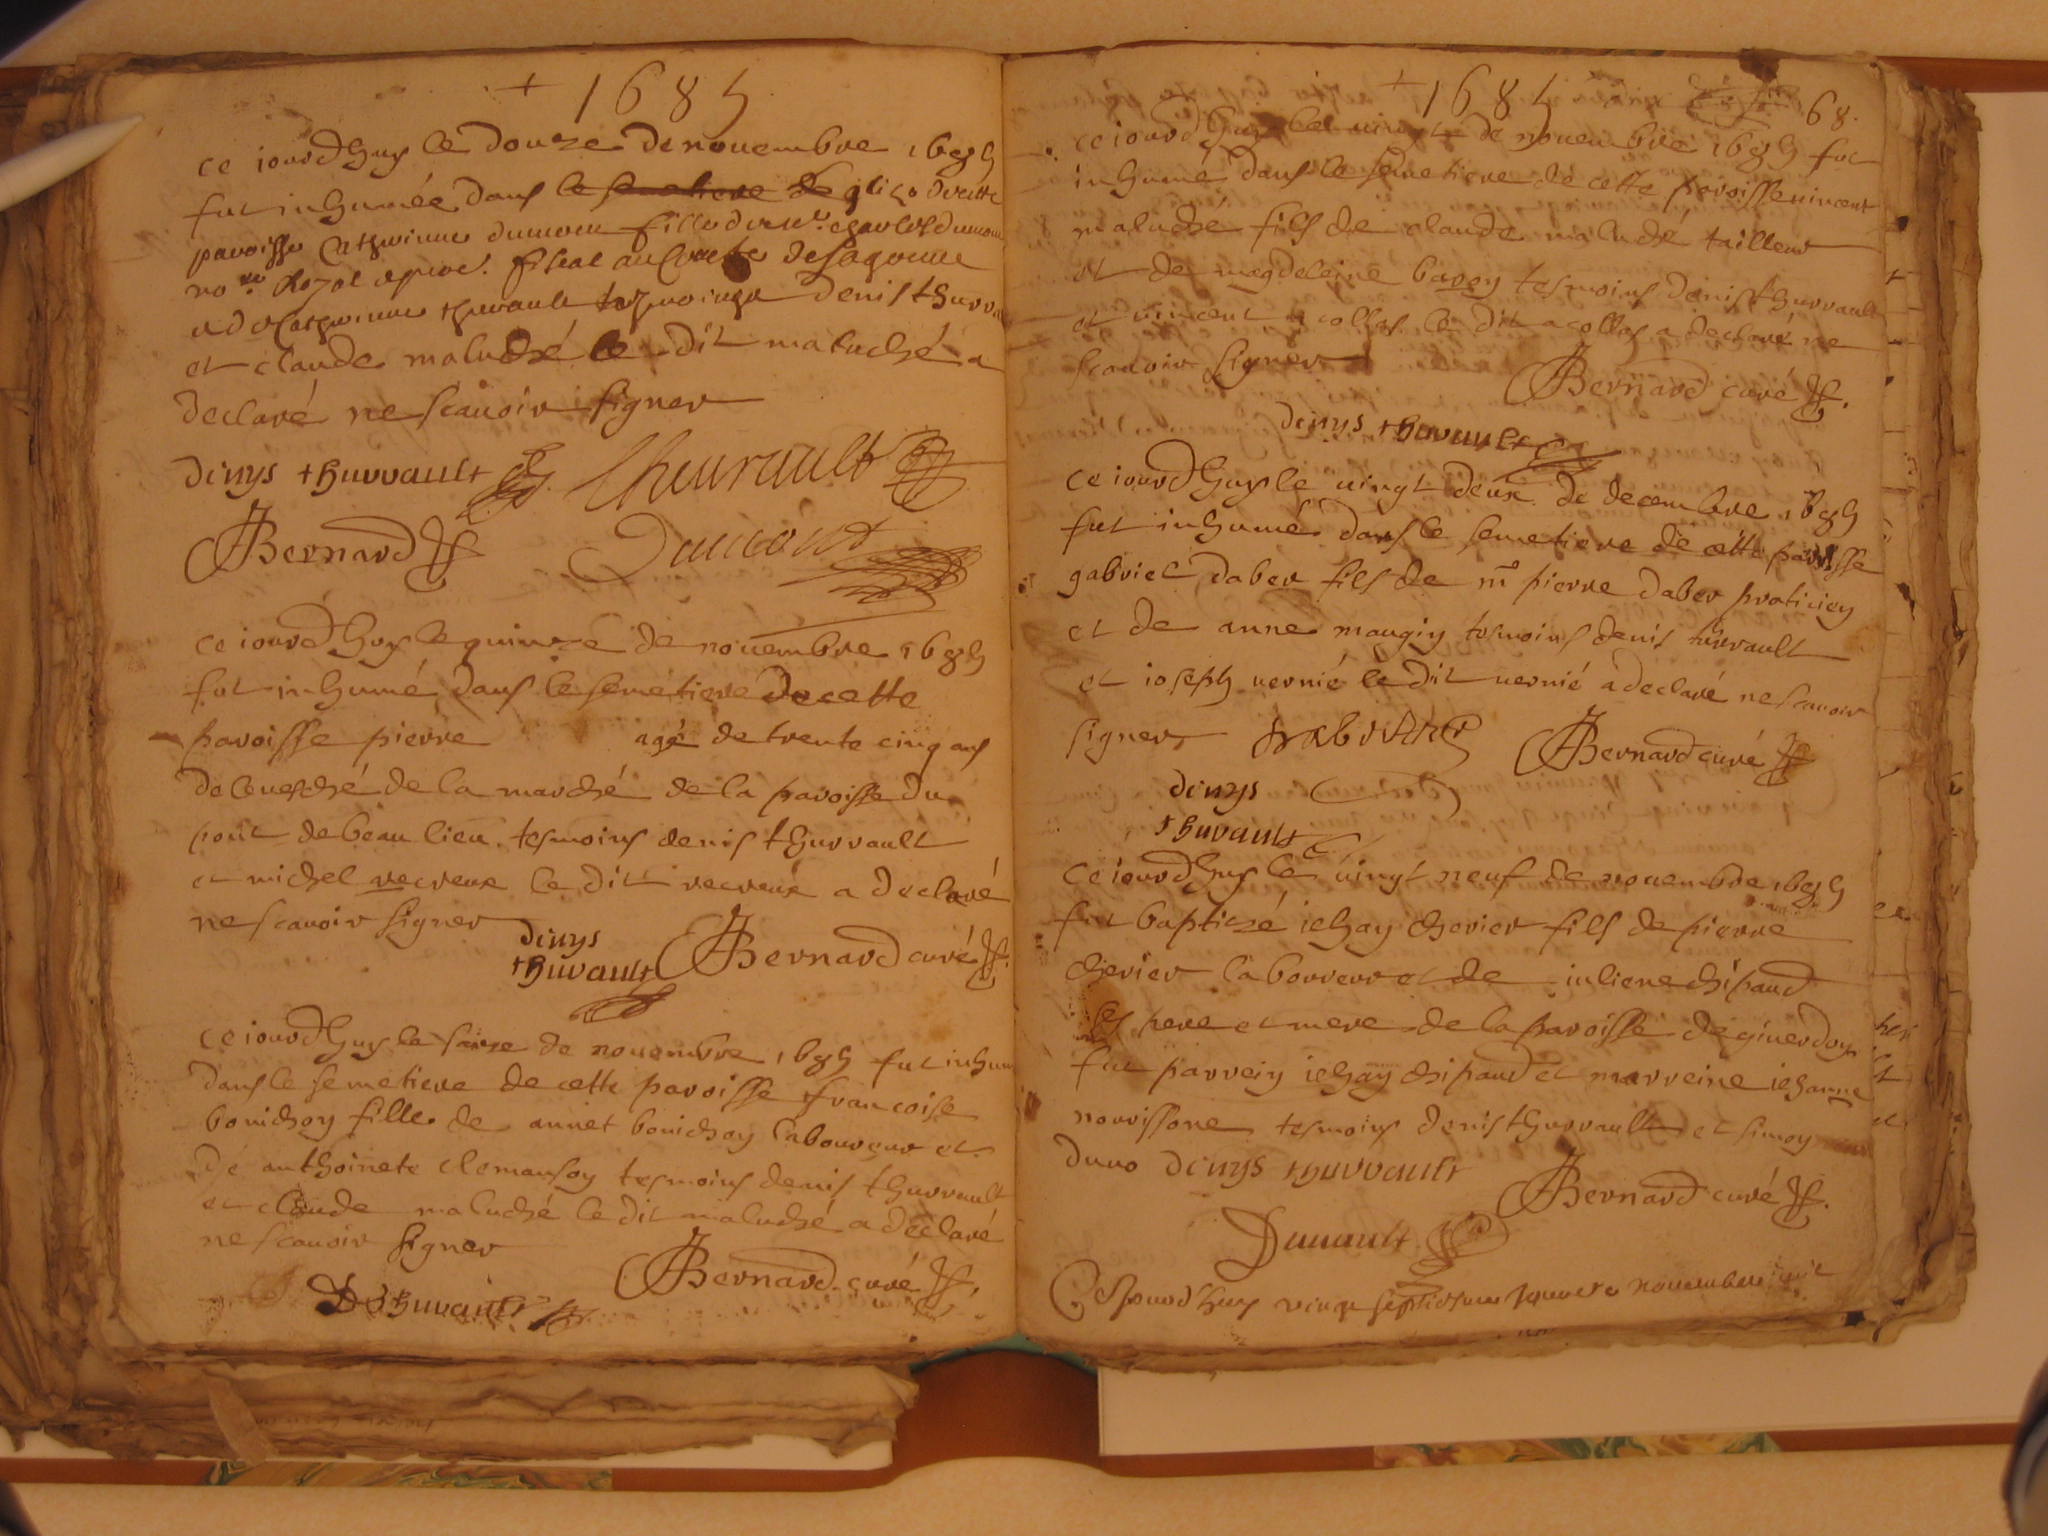 + 1685
ce iourdhuy le douze de nouembre 1685
fut inhumée dans le semetiere de glise de cette
paroisse Catherinne dumon fille de
no.re Royal
et Catherinne theurault denis thurra
et claude maluché le dit maluché a
declaré ne scauoir signer
denys thurvault Theurault
JBernard Dumont
ce iourdhuy le quinze de nouembre 1685
fut inhumé dans le semetiere de cette
paroisse pierre agé de trente cinq ans
de leuesché de la marché de la paroisse du
pont de beau lieu tesmoins denis thurvault
et michel recreux le dit recreux a declaré
ne scauoir signer
denys
thuvault JBernard curé
ce iourdhuy le saize de nouembre 1685 fut inhum
dans le semetiere de cette paroisse francoise
bonichon fille de annet bonichon laboureur et
de anthoinete clemanson tesmoins denis thurvault
et claude maluché le dit maluché a declaré
ne scauoir signer
D thuvault JBernard curé
+ 1685 68.
ce iourdhuy le vingt de nouembre 1685 fut
inhumé dans le semetiere de cette paroisse vincent
maluché fils de claude maluché tailleur
et de magdeleine tesmoins denis thurvault
et vincent acollas le dit acollas a declaré ne
scauoir signer
JBernard curé
denys thuvault
ce iourdhuy le uingt deux de decembre 1685
fut inhumé dans le semetiere de cette paroisse
gabriel daber fils de me pierre daber praticien
et de anne maugin tesmoins denis thurvault
et ioseph vernié le dit vernié a declaré ne scauoir
signer JBernard curé
denys
thuvault
ce iourdhuy le uingt neuf de nouembre 1685
fut baptizé iehan cherier fils de pierre
cherier laboureur et de iuliene chipaud
ses pere et mere de la paroisse de giuerdon
fut parrein iehan chipaud et marreine iehanne
nourissone tesmoins denis thurvault et simon
duuo denys thurvault
JBernard curé
Duuault
Ce Jourdhuy vingt nouembre